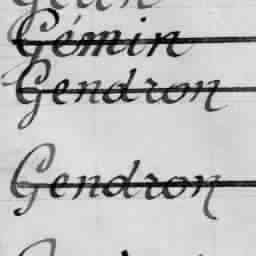 Gémin
Gendron
Gendron